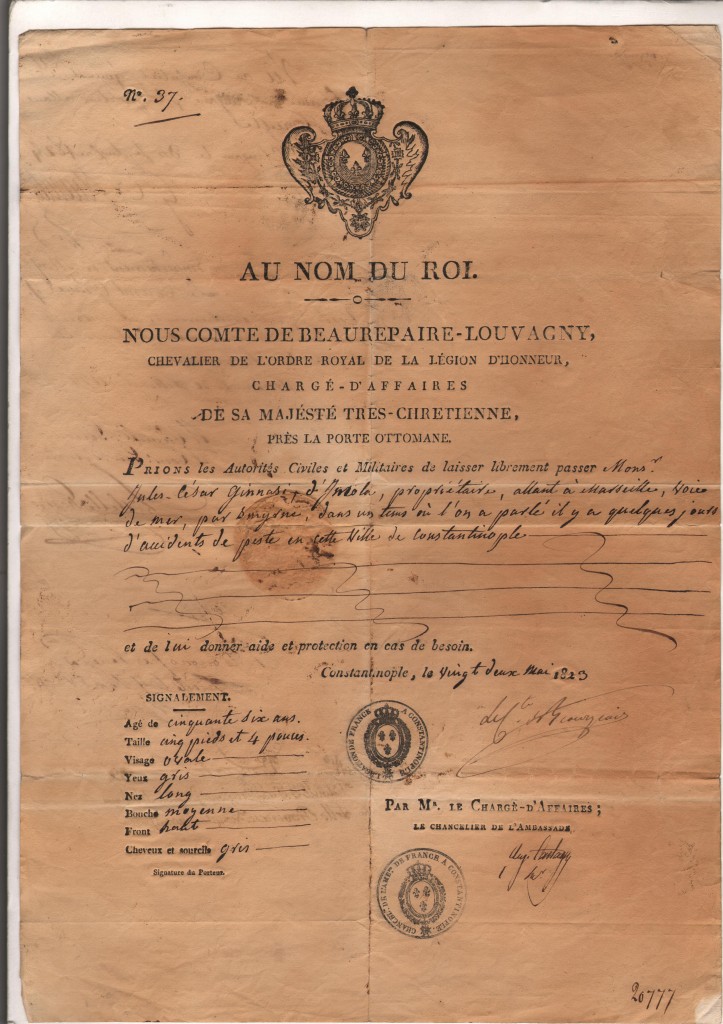 Nº. 37.
AU NOM DU ROI.
NOUS COMTE DE BEAUREPAIRE-LOUVAGNY,
CHEVALIER DE L'ORDRE ROYAL DE LA LÉGION D'HONNEUR,
CHARGÉ-D'AFFAIRES
DE SA MAJÉSTÉ TRES-CHRETIENNE,
PRÈS LA PORTE OTTOMANE.
PRIONS les Autorités Civiles et Militaires de laisser librement passer Monsr.
Jules-César Ginnasi, d'Imola, propriétaire, allant à Marseille, voie
de mer, par Smyrne, dans un tems où l'on a parlé il y a quelques jours
d'accidents de peste en cette Ville de Constantinople
et de lui donner aide et protection en cas de besoin.
Constantinople, le Vingt deux Mai 1823
SIGNALEMENT.
Agé de cinquante six ans.
Taille cinq pieds et 4 pouces.
Visage ovale
Yeux gris
Nez long
Bouche moyenne
Front haut
Cheveux et sourcils gris
Signature du Porteur.
LEGATION DE FRANCE A CONSTANTINOPLE
PAR Mr. LE CHARGÉ-D'AFFAIRES;
LE CHANCELIER DE L'AMBASSADE
CHANCEL. DE L'AMB. DE FRANCE A CONSTANTINPLE.
20777